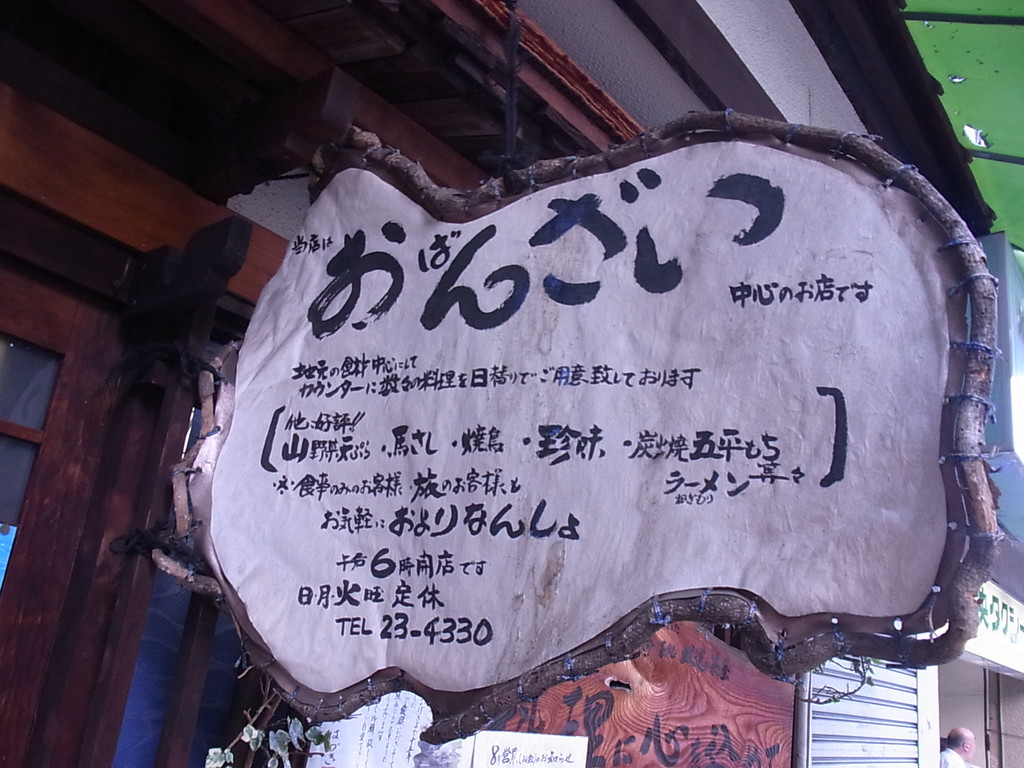 当店は おばんざい
中心のお店です
土地元の食材中心にして
カウンターに数々の料理を日替りでご用意致しております
他、好評!!
山野草天ぷら・馬さし・焼鳥・珍味・炭火焼五平もち
ラーメン 等々
・お食事のみのお客様 旅のお客様も
お気軽に およりなんしょ
午后6時開店です
日・月・火曜定休
TEL 23-4330
料理に心を
央タクシー